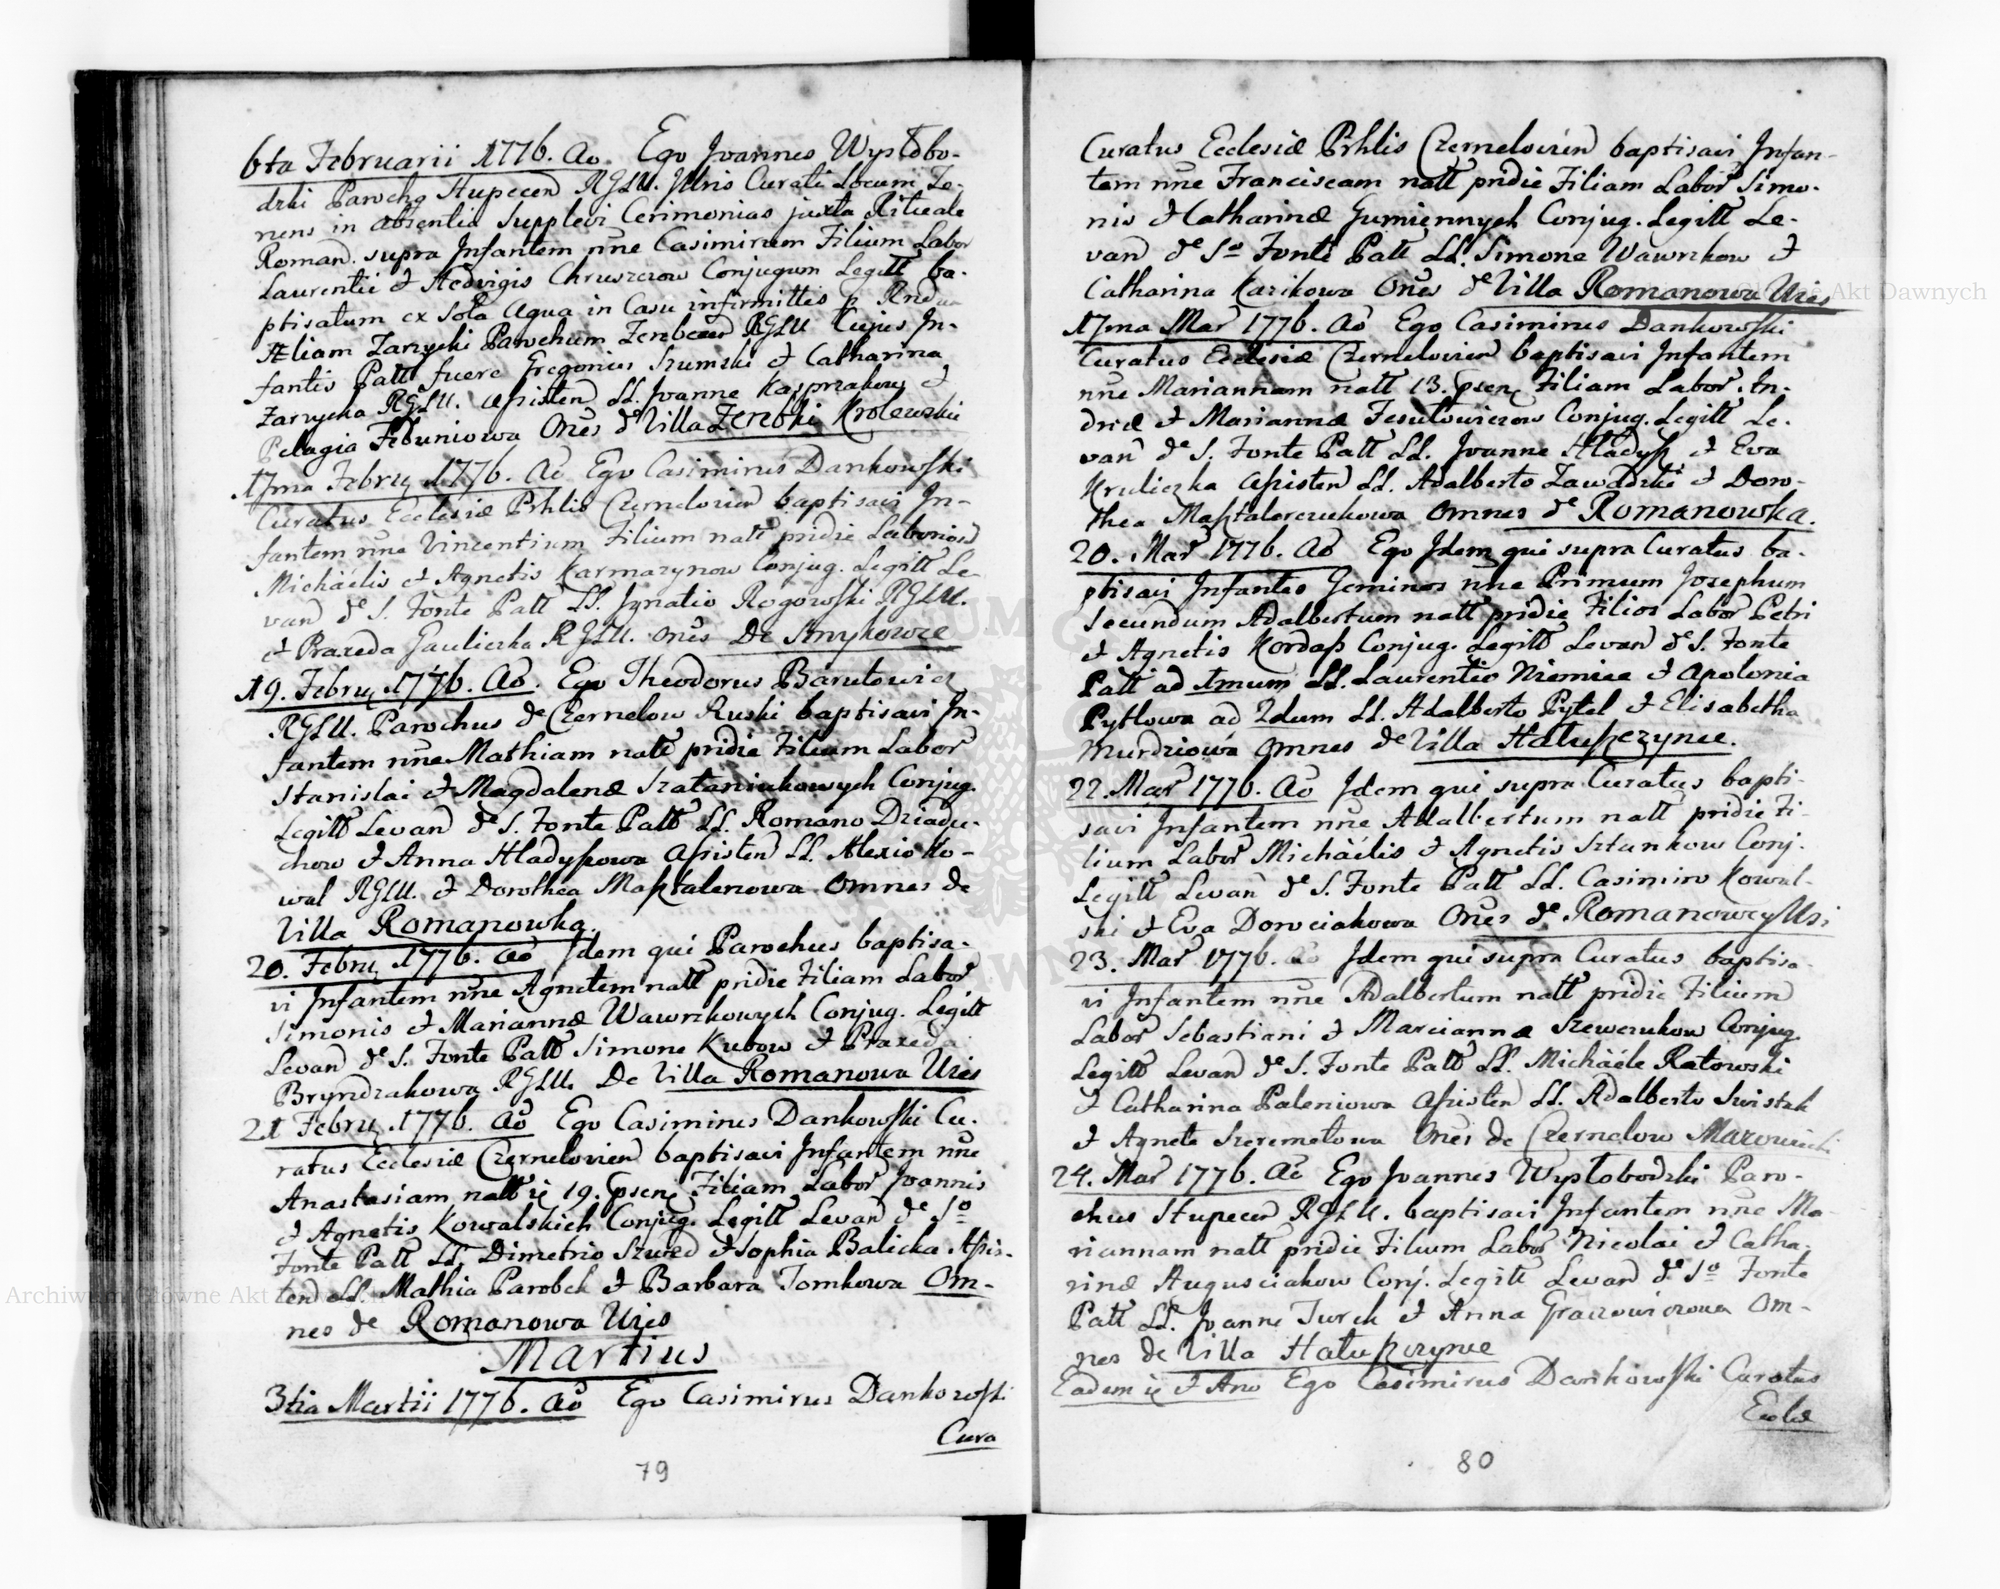 6ta Februarii 1776. Ao. Ego Joannes Wysłobo-
dzki Parochg Stupecen RGLU. Curati Locum Te-
nens in absentia Supplevi Cerimonias juxta Rituale
Roman. supra Infantem nne Casimirum Filium Labor
Laurentii et Hedvigis Chruszczow Conjugum Legitt ba-
ptisatum ex Sola aqua in Casu infirmittis p
Eliam Zarzycki Parochum RGLU Cujus In-
fantis Patt fuere Gregorius Szumski et Catharina
Zarzycka RGLU. Assisten LL. Joanne Kasprzakow et
Pelagia Febuniowa Ones de Villa Zerebki Krolewskie
17ma Febru 1776. Ao Ego Casimirus Dankowski
Curatus Ecclesiæ Prhlis Czernelovien baptisavi In-
fantem nne Vincentium Filium natt pridie Laborios
Michaelis et Agnetis Karmazynow Conjug. Legitt Le-
van de S. Fonte Patt LL. Ignatio Rogowski RGLU.
et Praxeda Gauliczka RGLU. ones De Smykowce
19. Febru 1776. Ao. Ego Theodorus Barutowicz
RGLU. Parochus de Czernelow Ruski baptisavi In-
fantem nne Mathiam natt pridie Filium Labor
Stanislai et Magdalenæ Szataniukowych Conjug.
Legitt Levan de S. Fonte Patt LL. Romano Dziadu-
chow et Anna Hladyszowa Assisten LL. Alexio Ko-
wal RGLU. et Dorothea Masztalerzowa Omnes de
Villa Romanowka.
20. Febru 1776. Ao Idem qui Parochus baptisa-
vi Infantem nne Agnetem natt pridie Filiam Labor
Simonis et Mariannæ Wawrzkowych Conjug. Legitt
Levan de S. Fonte Patt Simone Kubow et Praxeda
Bryndzakowa RGLU. De Villa Romanowa Uies
21 Febru 1776. Ao Ego Casimirus Dankowski Cu-
ratus Ecclesiæ Czernelovien baptisavi Infantem nne
Anastasiam natt ie 19. psene Filiam Labor Joannis
et Agnetis Kowalskich Conjug. Legitt Levan de So
Fonte Patt LL. Dimetrio Szwed et Sophia Balicka Assis-
ten LL. Mathia Parobek et Barbara Tomkowa Om-
nes de Romanowa Uies
Martius
3tia Martii 1776. Ao Ego Casimirus Dankowski
Cura
79
Curatus Ecclesiæ Prhlis Czernelovien baptisavi Infan-
tem nne Franciscam natt pridie Filiam Labor Simo-
nis et Catharinæ Gumiennych Conjug. Legitt Le-
van de So Fonte Patt LL. Simone Wawrzkow et
Catharina Kazikowa Ones de Villa Romanowa Uies
17ma Mar 1776. Ao Ego Casimirus Dankowski
Curatus Ecclesiæ Czernelovien baptisavi Infantem
nne Mariannam natt 13. psene Filiam Labor. An-
dreæ et Mariannæ Conjug. Legitt Le-
van de S. Fonte Patt LL. Joanne Hladysz et Eva
Hruliczka Assisten LL. Adalberto Zawadzki et Doro-
thea Masztalerczukowa Omnes de Romanowka.
20. Mar 1776. Ao Ego Idem qui supra Curatus ba-
ptisavi Infantes Geminos nne Primum Josephum
Secundum Adalbertum natt pridie Filios Labor Petri
et Agnetis Kordass Conjug. Legitt Levan de S. Fonte
Patt ad 1mum LL. Laurentio Niemiec et Apolonia
Pytlowa ad 2dum LL. Adalberto Pytel et Elisabetha
Murdziowa Omnes de Villa Hałuszczynce.
22. Mar 1776. Ao Idem qui supra Curatus bapti-
savi Infantem nne Adalbertum natt pridie Fi-
lium Labor Michaelis et Agnetis Sztankow Conj.
Legitt Levan de S. Fonte Patt LL. Casimiro Kowal-
ski et Eva Dorociakowa Ones de Romanowey Wsi
23. Mar 1776. Ao Idem qui supra Curatus baptisa-
vi Infantem nne Adalbertum natt pridie Filium
Labor Sebastiani et Mariannæ Szewczukow Conjug
Legitt Levan de S. Fonte Patt LL. Michaele Ratowski
et Catharina Paleniowa Assisten LL. Adalberto Swistak
et Agnete Szeremetowa Ones de Czernelow Mazowiecki
24. Mar 1776. Ao Ego Joannes Wysłobodzki Paro-
chus Stupecen RGLU. baptisavi Infantem nne Ma-
riannam natt pridie Filium Labor Nicolai et Catha-
rinæ Augusciakow Conj. Legitt Levan de So Fonte
Patt LL. Joanne Turek et Anna Om-
nes de Villa Hałuszczynce
Eadem ie et Ano Ego Casimirus Dankowski Curatus
Ecclæ
80
Archiwum Główne Akt Dawnych